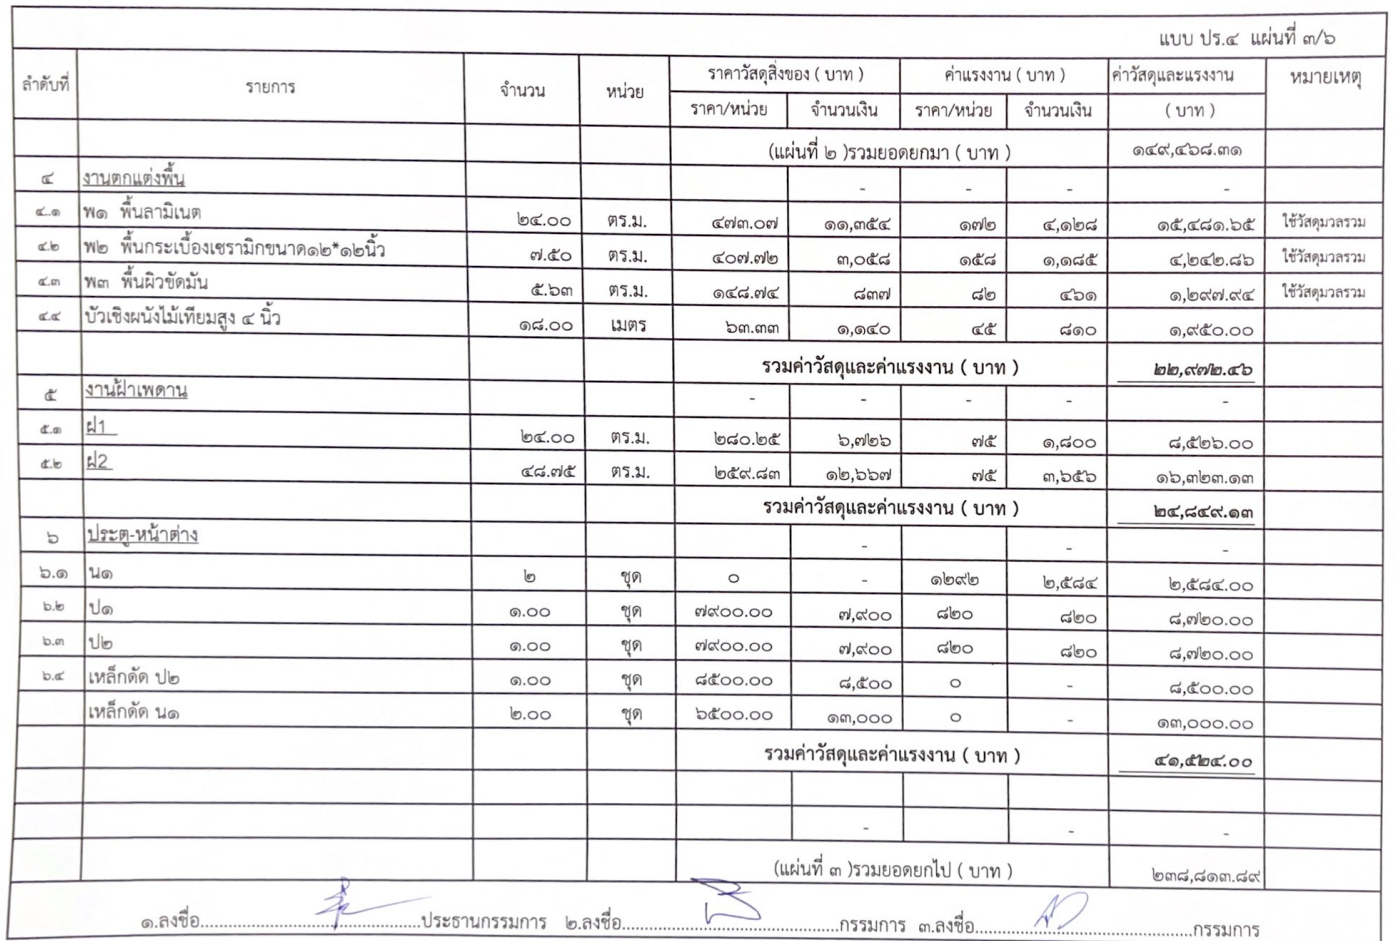 แบบ ปร.๔ แผ่นที่ ๓/๖
ลำดับที่ รายการ จำนวน หน่วย ราคาวัสดุสิ่งของ ( บาท ) ค่าแรงงาน ( บาท ) ค่าวัสดุและแรงงาน หมายเหตุ
ราคา/หน่วย จำนวนเงิน ราคา/หน่วย จำนวนเงิน ( บาท )
(แผ่นที่ ๒ )รวมยอดยกมา ( บาท ) ๑๔๙,๔๖๘.๓๑
๔ งานตกแต่งพื้น - - - -
๔.๑ พ๑ พื้นลามิเนต ๒๔.๐๐ ตร.ม. ๔๗๓.๐๗ ๑๑,๓๕๔ ๑๗๒ ๔,๑๒๘ ๑๕,๔๘๑.๖๕ ใช้วัสดุมวลรวม
๔.๒ พ๒ พื้นกระเบื้องเซรามิกขนาด๑๒*๑๒นิ้ว ๗.๕๐ ตร.ม. ๔๐๗.๗๒ ๓,๐๕๘ ๑๕๘ ๑,๑๘๕ ๔,๒๔๒.๘๖ ใช้วัสดุมวลรวม
๔.๓ พ๓ พื้นผิวขัดมัน ๕.๖๓ ตร.ม. ๑๔๘.๗๔ ๘๓๗ ๘๒ ๔๖๑ ๑,๒๙๗.๙๔ ใช้วัสดุมวลรวม
๔.๔ บัวเชิงผนังไม้เทียมสูง ๔ นิ้ว ๑๘.๐๐ เมตร ๖๓.๓๓ ๑,๑๔๐ ๔๕ ๘๑๐ ๑,๙๕๐.๐๐
รวมค่าวัสดุและค่าแรงงาน ( บาท ) ๒๒,๙๗๒.๔๖
๕ งานฝ้าเพดาน - - - - -
๕.๑ ฝ1 ๒๔.๐๐ ตร.ม. ๒๘๐.๒๕ ๖,๗๒๖ ๗๕ ๑,๘๐๐ ๘,๕๒๖.๐๐
๕.๒ ฝ2 ๔๘.๗๕ ตร.ม. ๒๕๙.๘๓ ๑๒,๖๖๗ ๗๕ ๓,๖๕๖ ๑๖,๓๒๓.๑๓
รวมค่าวัสดุและค่าแรงงาน ( บาท ) ๒๔,๘๔๙.๑๓
๖ ประตู-หน้าต่าง - - -
๖.๑ น๑ ๒ ชุด ๐ - ๑๒๙๒ ๒,๕๘๔ ๒,๕๘๔.๐๐
๖.๒ ป๑ ๑.๐๐ ชุด ๗๙๐๐.๐๐ ๗,๙๐๐ ๘๒๐ ๘๒๐ ๘,๗๒๐.๐๐
๖.๓ ป๒ ๑.๐๐ ชุด ๗๙๐๐.๐๐ ๗,๙๐๐ ๘๒๐ ๘๒๐ ๘,๗๒๐.๐๐
๖.๔ เหล็กดัด ป๒ ๑.๐๐ ชุด ๘๕๐๐.๐๐ ๘,๕๐๐ ๐ - ๘,๕๐๐.๐๐
เหล็กดัด น๑ ๒.๐๐ ชุด ๖๕๐๐.๐๐ ๑๓,๐๐๐ ๐ - ๑๓,๐๐๐.๐๐
รวมค่าวัสดุและค่าแรงงาน ( บาท ) ๔๑,๕๒๔.๐๐
- - -
(แผ่นที่ ๓ )รวมยอดยกไป ( บาท ) ๒๓๘,๘๑๓.๘๙
๑.ลงชื่อ........................................ประธานกรรมการ ๒.ลงชื่อ........................................กรรมการ ๓.ลงชื่อ........................................กรรมการ